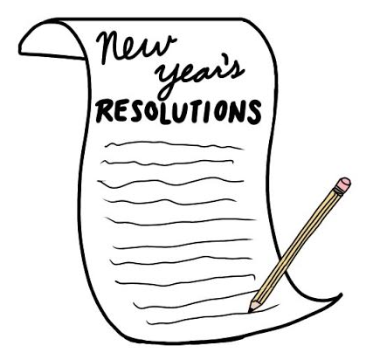 New
year's
RESOLUTIONS